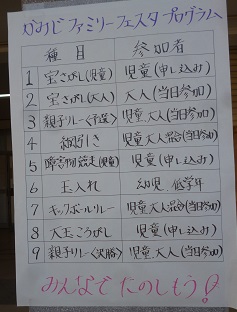 かみじファミリーフェスタプログラム
種目 参加者
1 宝さがし(児童) 児童(申し込み)
2 宝さがし(大人) 大人(当日参加)
3 親子リレー(予選) 児童大人(当日参加)
4 綱引き 児童大人混合(当日参加)
5 障害物競走(児童) 児童(申し込み)
6 玉入れ 幼児 低学年
7 キックボールリレー 児童大人混合(当日参加)
8 大玉ころがし 児童大人(当日参加)
9 親子リレー(決勝) 児童大人(当日参加)
みんなでたのしもう!